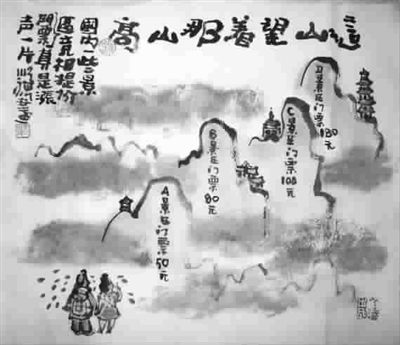 这山望着那山高
国内一些景
区竞相提价
門票算是漲
声一片
A景区门票50元
B景区门票80元
C景区门票108元
D景区门票130元